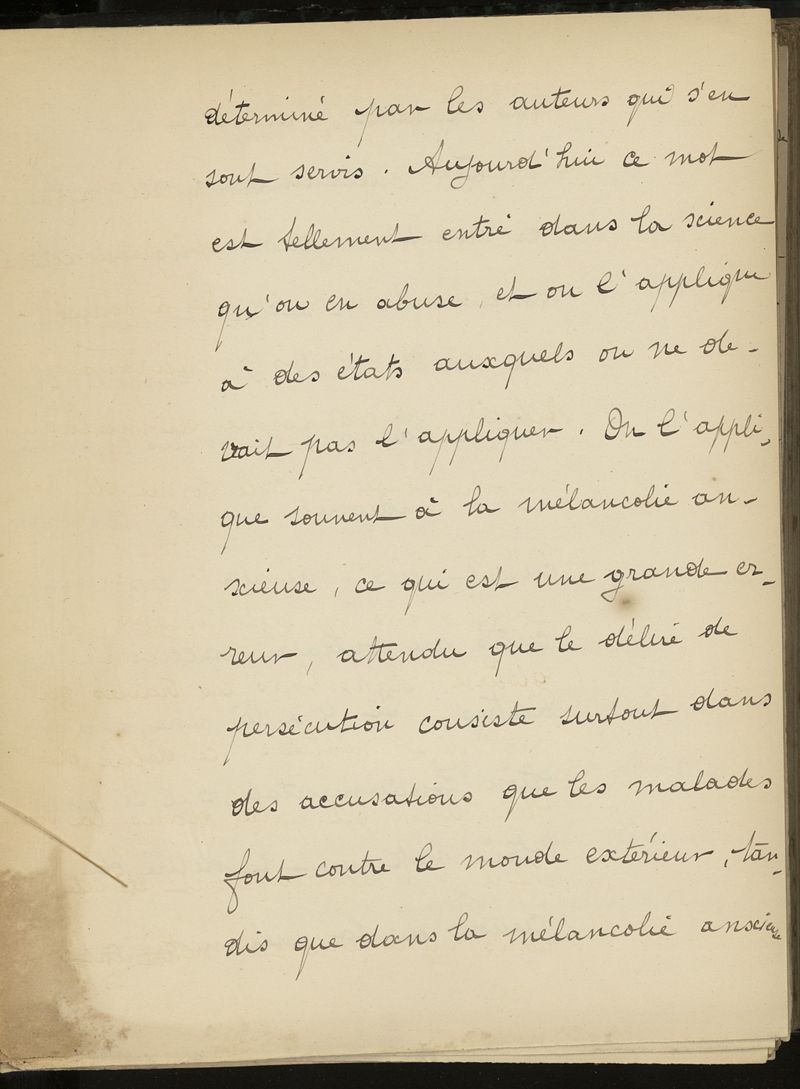 déterminé par les auteurs qui s'en
sont servis. Aujourd'hui ce mot
est tellement entré dans la science
qu'on en abuse, et on l'applique
à des états auxquels on ne de-
vait pas l'appliquer. On l'appli-
que souvent à la mélancolie an-
xieuse, ce qui est une grande er-
reur, attendu que le délire de
persécution consiste surtout dans
des accusations que les malades
font contre le monde extérieur, tan-
dis que dans la mélancolie anxieuse